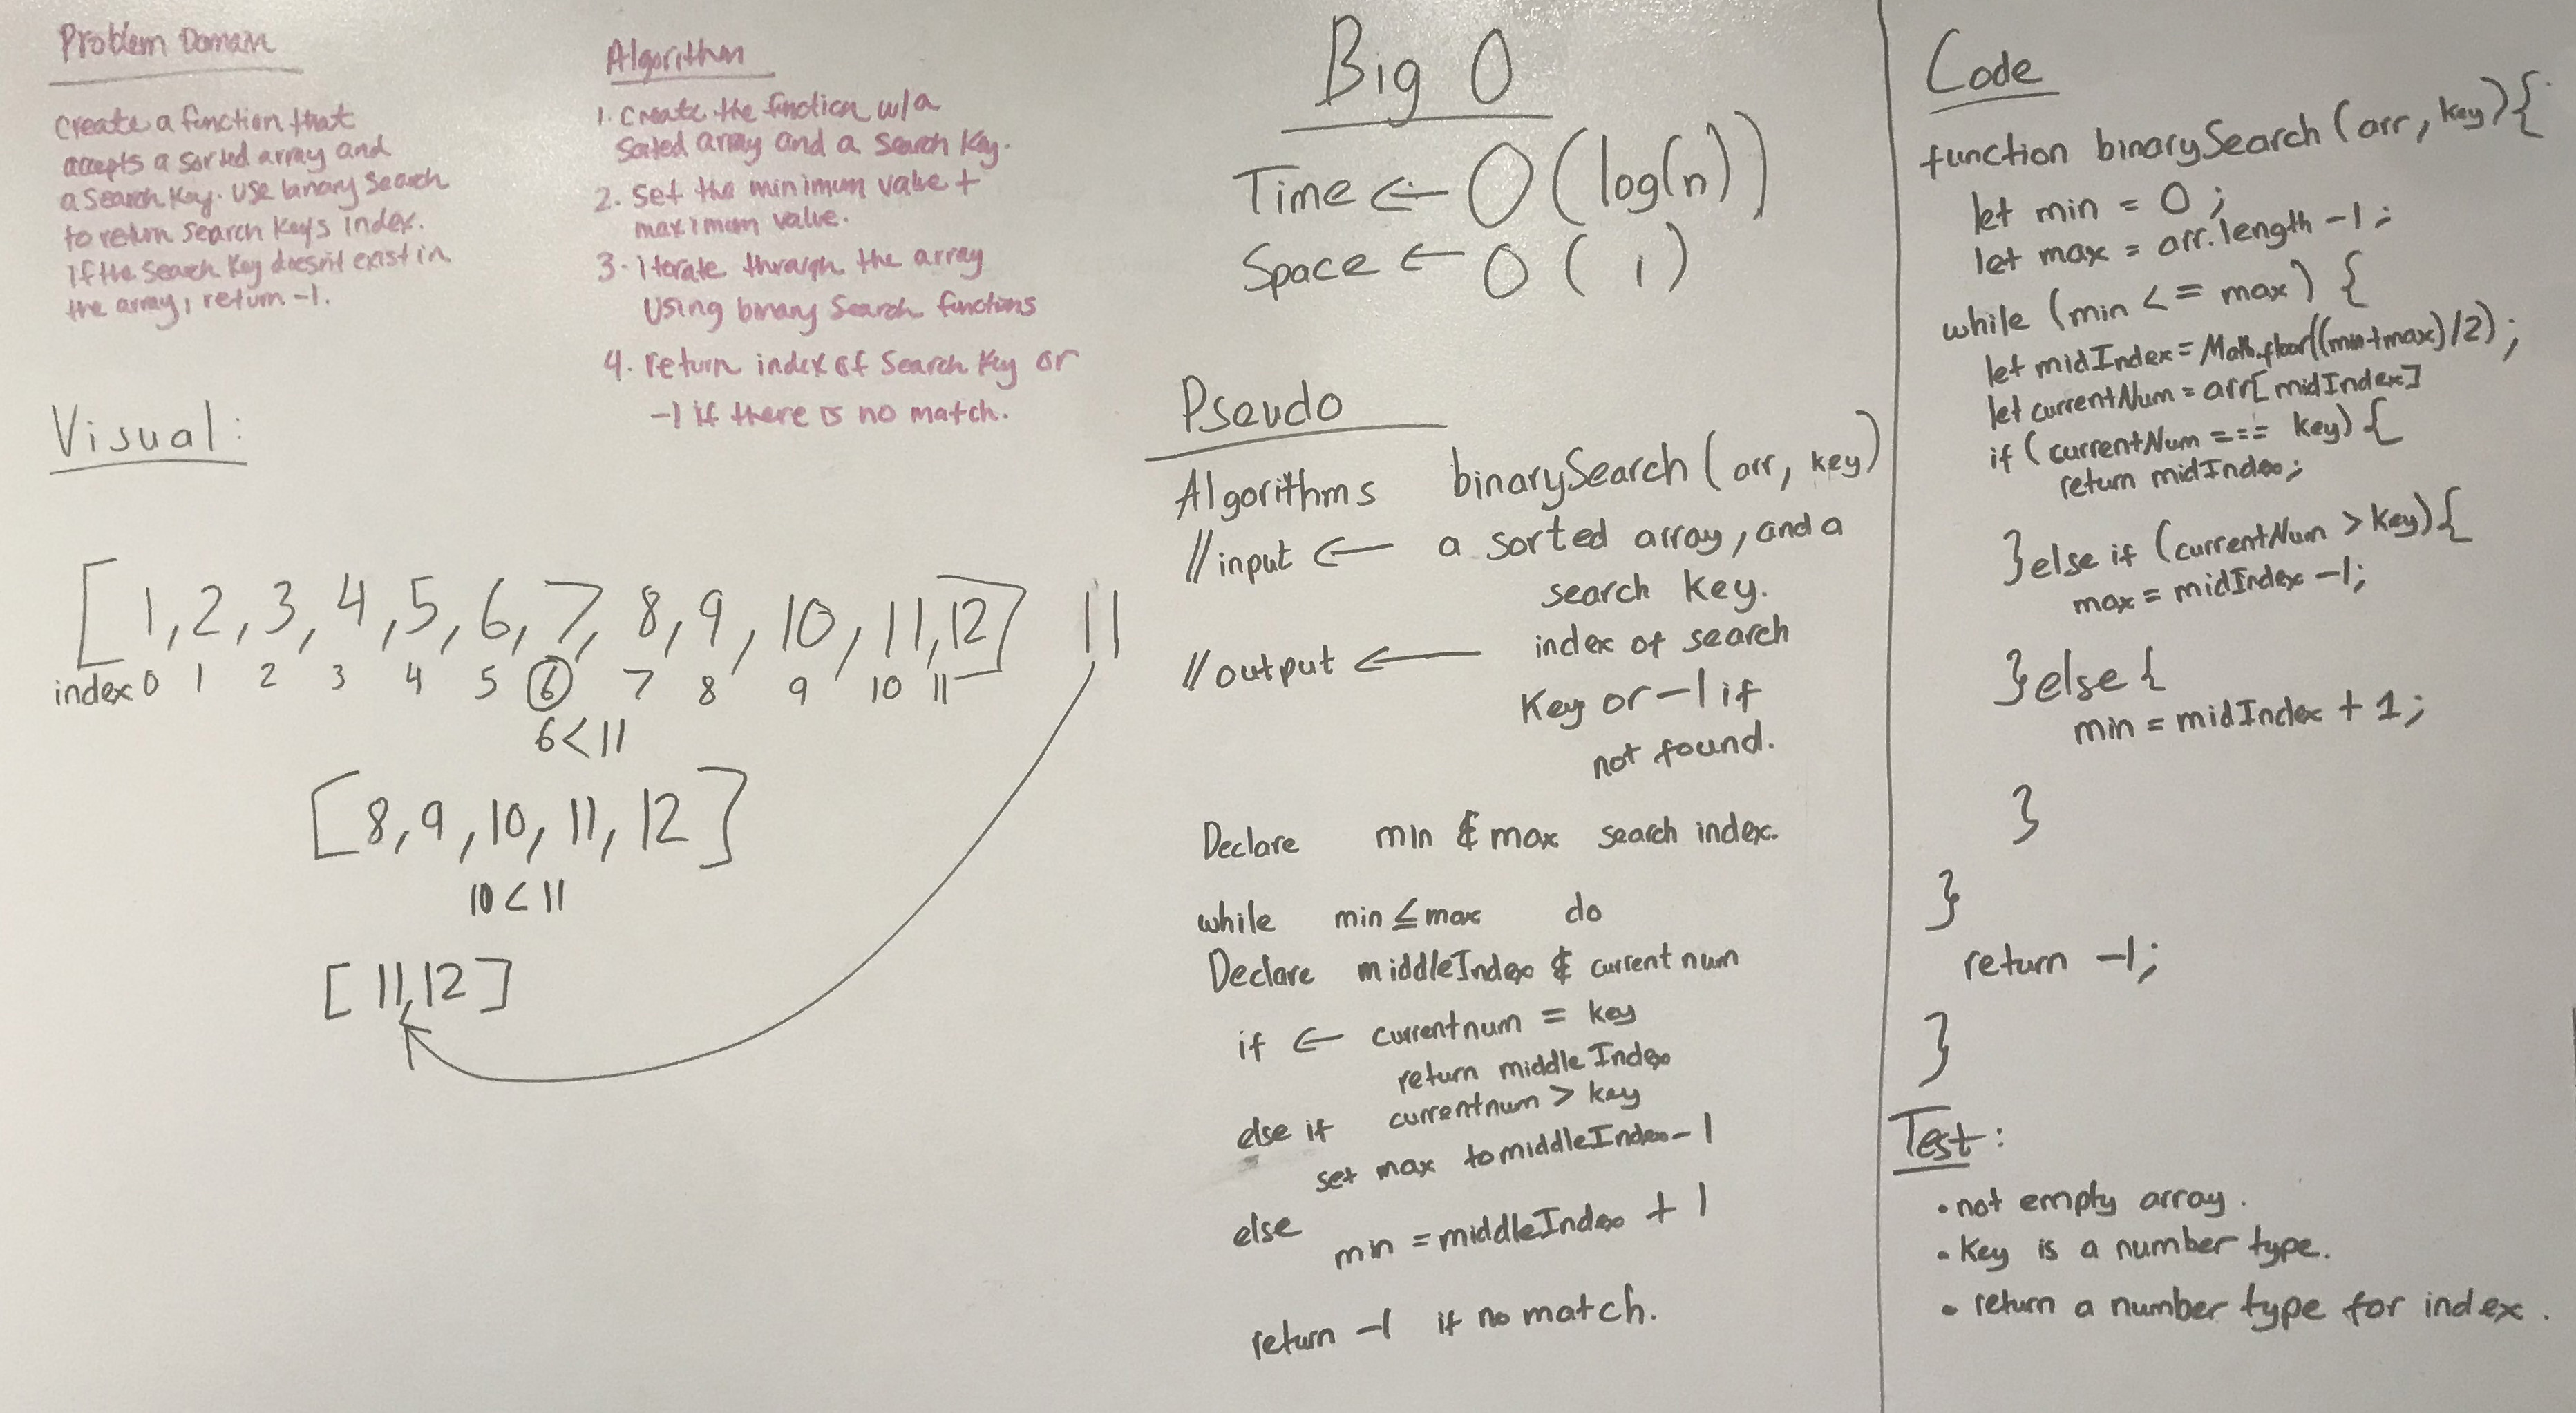 Problem Domain
create a function that
accepts a sorted array and
a search key. use binary search
to return search key's index.
if the search key doesn't exist in
the array, return -1.
Algorithm
1. create the function w/a
sorted array and a search key.
2. set the minimum value +
maximum value.
3. iterate through the array
using binary search functions
4. return index of search key or
-1 if there is no match.
Visual:
[1,2,3,4,5,6,7,8,9,10,11,12] 11
index 0 1 2 3 4 5 6 7 8 9 10 11
6<11
[8,9,10,11,12]
10<11
[11,12]
Big O
Time ← O(log(n))
Space ← O(1)
Pseudo
Algorithms binarySearch(arr, key)
//input ← a sorted array, and a
search key.
//output ← index of search
key or -1 if
not found.
Declare min & max search index.
while min ≤ max do
Declare middleIndex & current num
if ← currentnum = key
return middleIndex
else if currentnum > key
set max to middleIndex-1
else
min = middleIndex + 1
return -1 if no match.
Code
function binarySearch(arr, key){
let min = 0;
let max = arr.length -1;
while (min <= max) {
let midIndex = Math.floor((min+max)/2);
let currentNum = arr[midIndex]
if (currentNum === key){
return midIndex;
}else if (currentNum > key){
max = midIndex -1;
}else {
min = midIndex + 1;
}
}
return -1;
}
Test:
• not empty array.
• key is a number type.
• return a number type for index.